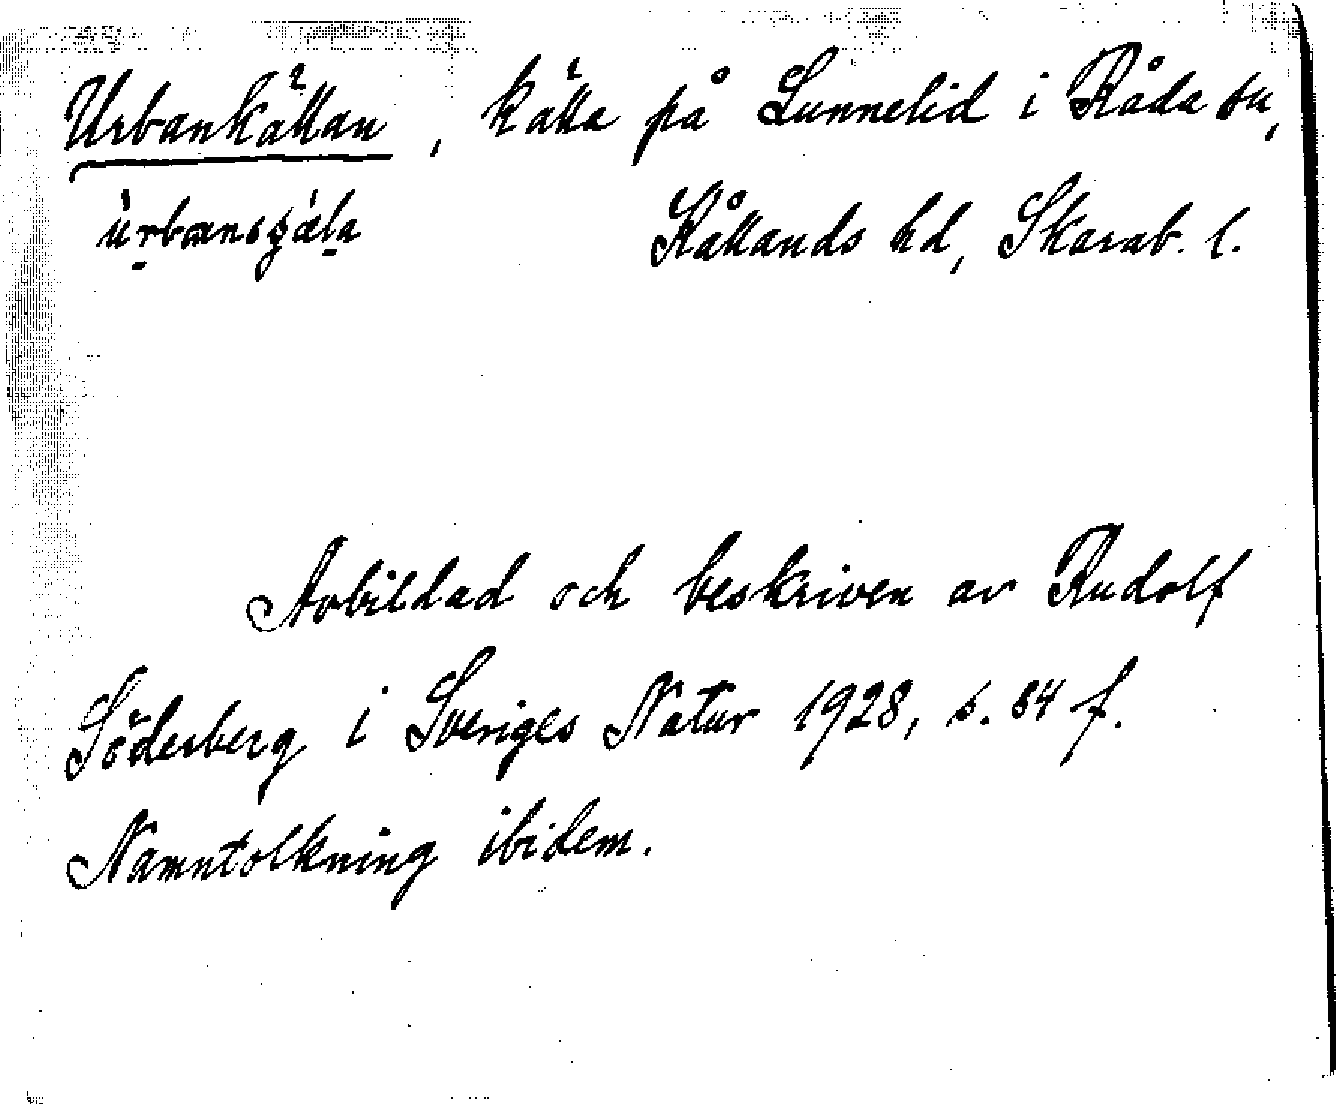 Urbankällan, källa på Lunnelid i Råda sn,
Kållands hd, Skarab. l.
Avbildad och beskriven av Rudolf
Söderberg i Sveriges Natur 1928, s. 84 f.
Namntolkning ibidem.